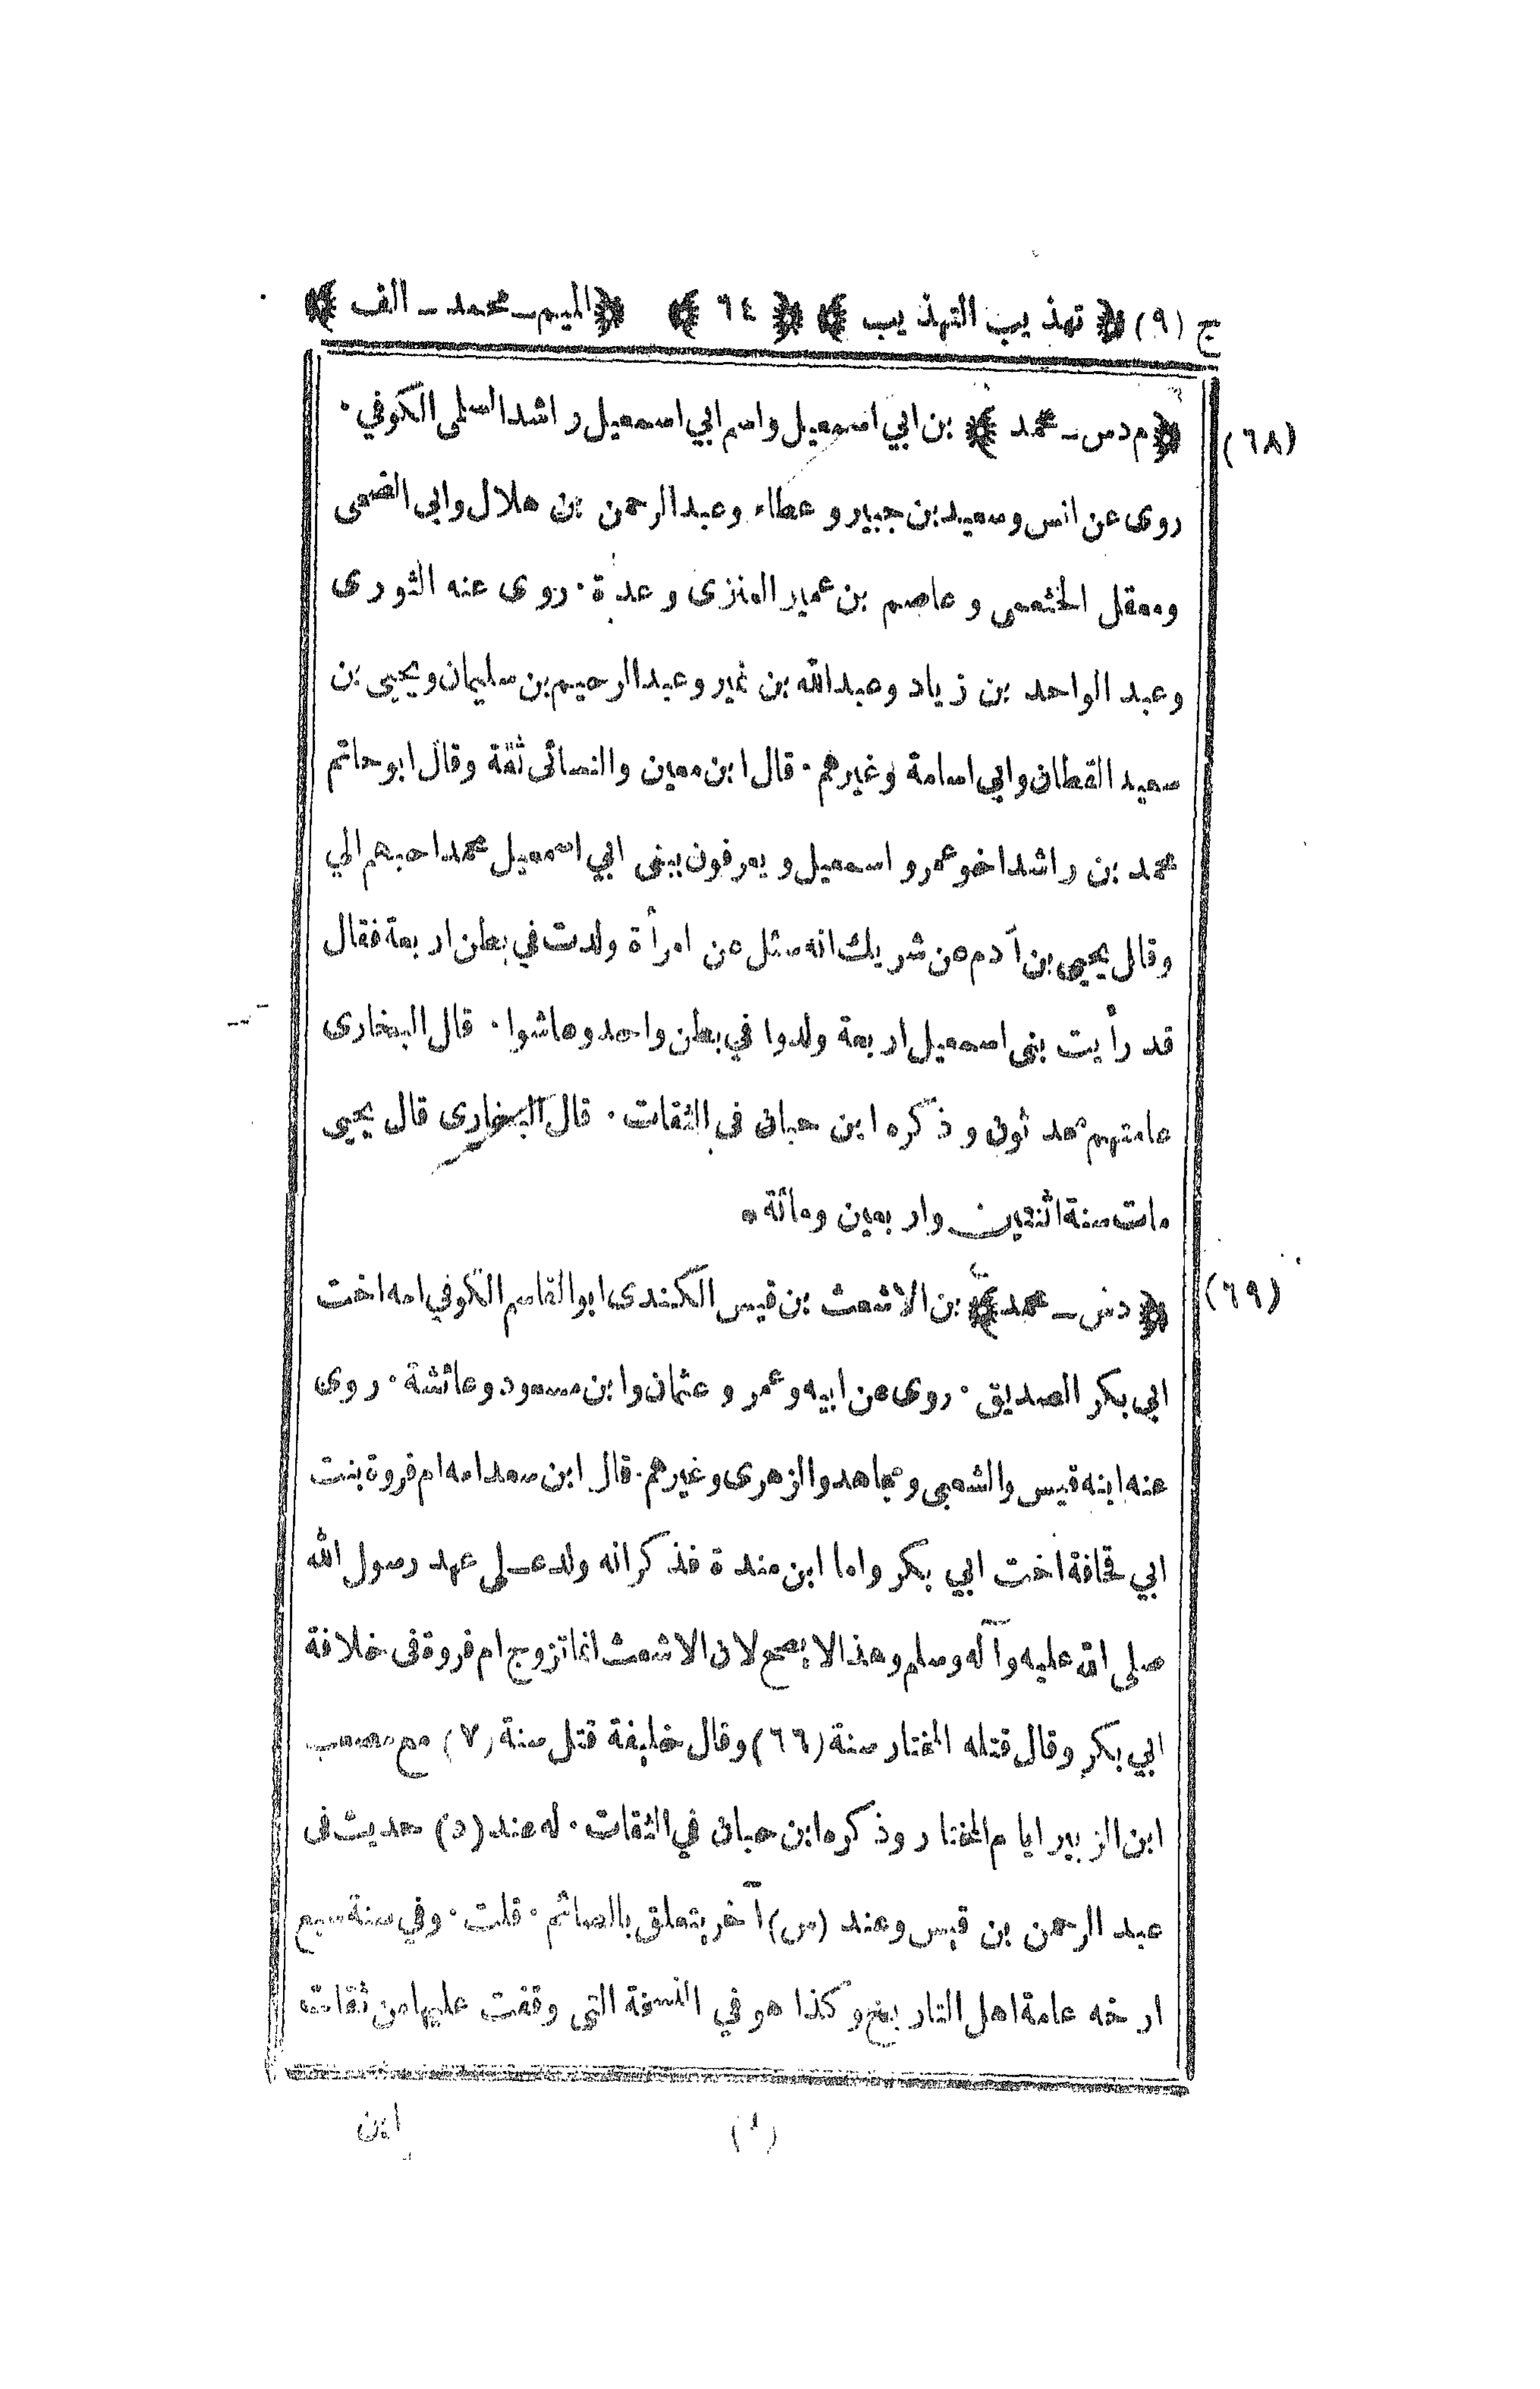 ج (٩) ﴿ تهذيب التهذيب ﴾ ﴿ ٦٤ ﴾ ﴿ الميم ـ محمد ـ الف ﴾
(٦٨) ﴿ م د س ـ محمد ﴾ بن ابي اسمعيل واسم ابي اسمعيل راشد السلمى الكوفي ·
روى عن انس وسعيد بن جبير وعطاء وعبد الرحمن بن هلال وابي الضحى
ومعقل الخثعمى وعاصم بن عمير العنزى وعدة · روى عنه الثورى
وعبد الواحد بن زياد وعبد الله بن نمير وعبد الرحيم بن سليمان ويحيى بن
سعيد القطان وابي اسامة وغيرهم · قال ابن معين والنسائى ثقة وقال ابو حاتم
محمد بن راشد اخو عمر و اسمعيل ويعرفون ببنى ابي اسمعيل محمد احبهم الي
وقال يحيى بن آدم عن شريك انه سئل عن امرأة ولدت في بطن اربعة فقال
قد رأيت بنى اسمعيل اربعة ولدوا في بطن واحد وعاشوا · قال البخارى
عامتهم محدثون وذكره ابن حبان فى الثقات · قال البخارى قال يحيى
مات سنة اثنتين واربعين ومائة ٠
(٦٩) ﴿ د س ـ محمد ﴾ بن الاشعث بن قيس الكندى ابو القاسم الكوفي امه اخت
ابي بكر الصديق · روى عن ابيه وعمر وعثمان وابن مسعود وعائشة · روى
عنه ابنه قيس والشعبى ومجاهد والزهرى وغيرهم · قال ابن سعد امه ام فروة بنت
ابي قحافة اخت ابي بكر واما ابن مندة فذكر انه ولد على عهد رسول الله
صلى الله عليه وآله وسلم وهذا لا يصح لان الاشعث انما تزوج ام فروة فى خلافة
ابي بكر وقال قتله المختار سنة (٦٦) وقال خليفة قتل سنة (٧) مع مصعب
ابن الزبير ايام المختار وذكره ابن حبان في الثقات · له عند (د) حديث فى
عبد الرحمن بن قيس وعند (س) آخر يتعلق بالصائم · قلت · وفي سنة سبع
ارخه عامة اهل التاريخ وكذا هو في النسخة التى وقفت عليها من ثقات
ابن